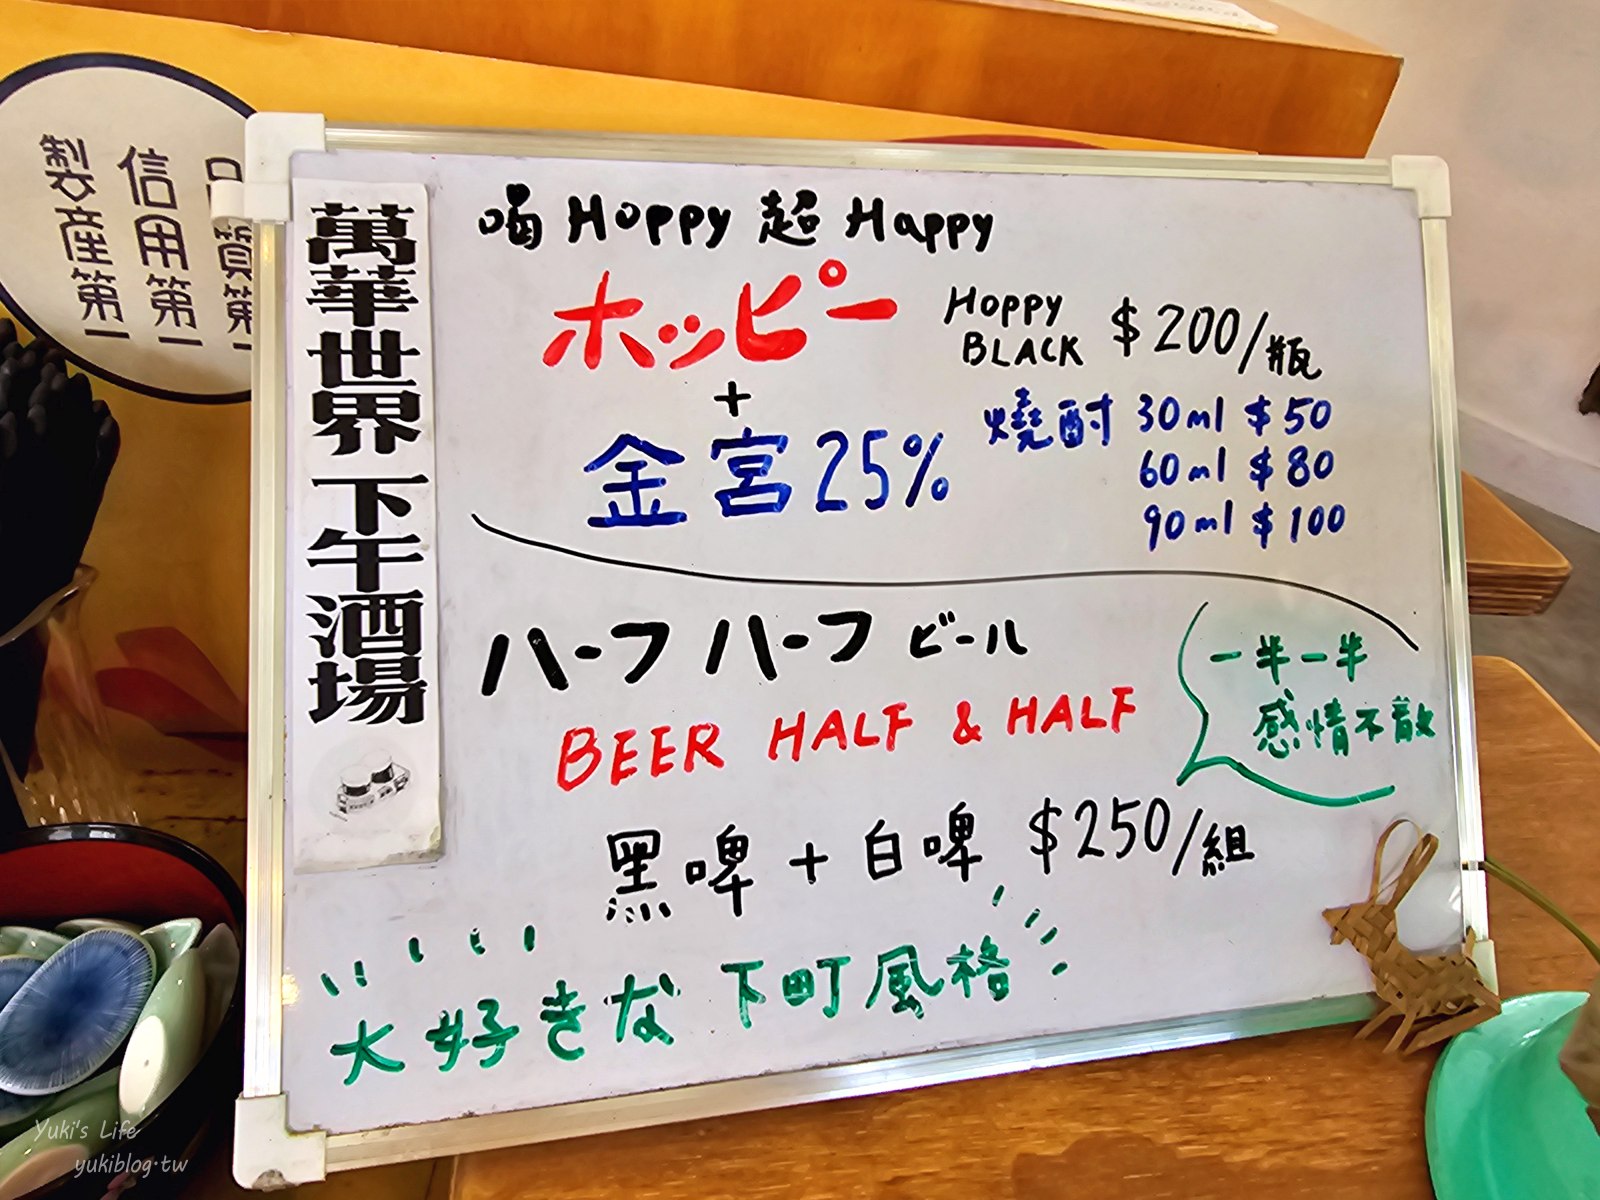 品質第一
信用第一
製產第一
萬華世界下午酒場
喝 Hoppy 超 Happy
ホッピー
HOPPY BLACK $200/瓶
+
金宮25%
燒酎 30ml $50
60ml $80
90ml $100
ハーフ ハーフ ビール
BEER HALF & HALF
一半一半
感情不散
黑啤+白啤 $250/組
大好きな下町風格
Yuki's Life
yukiblog.tw